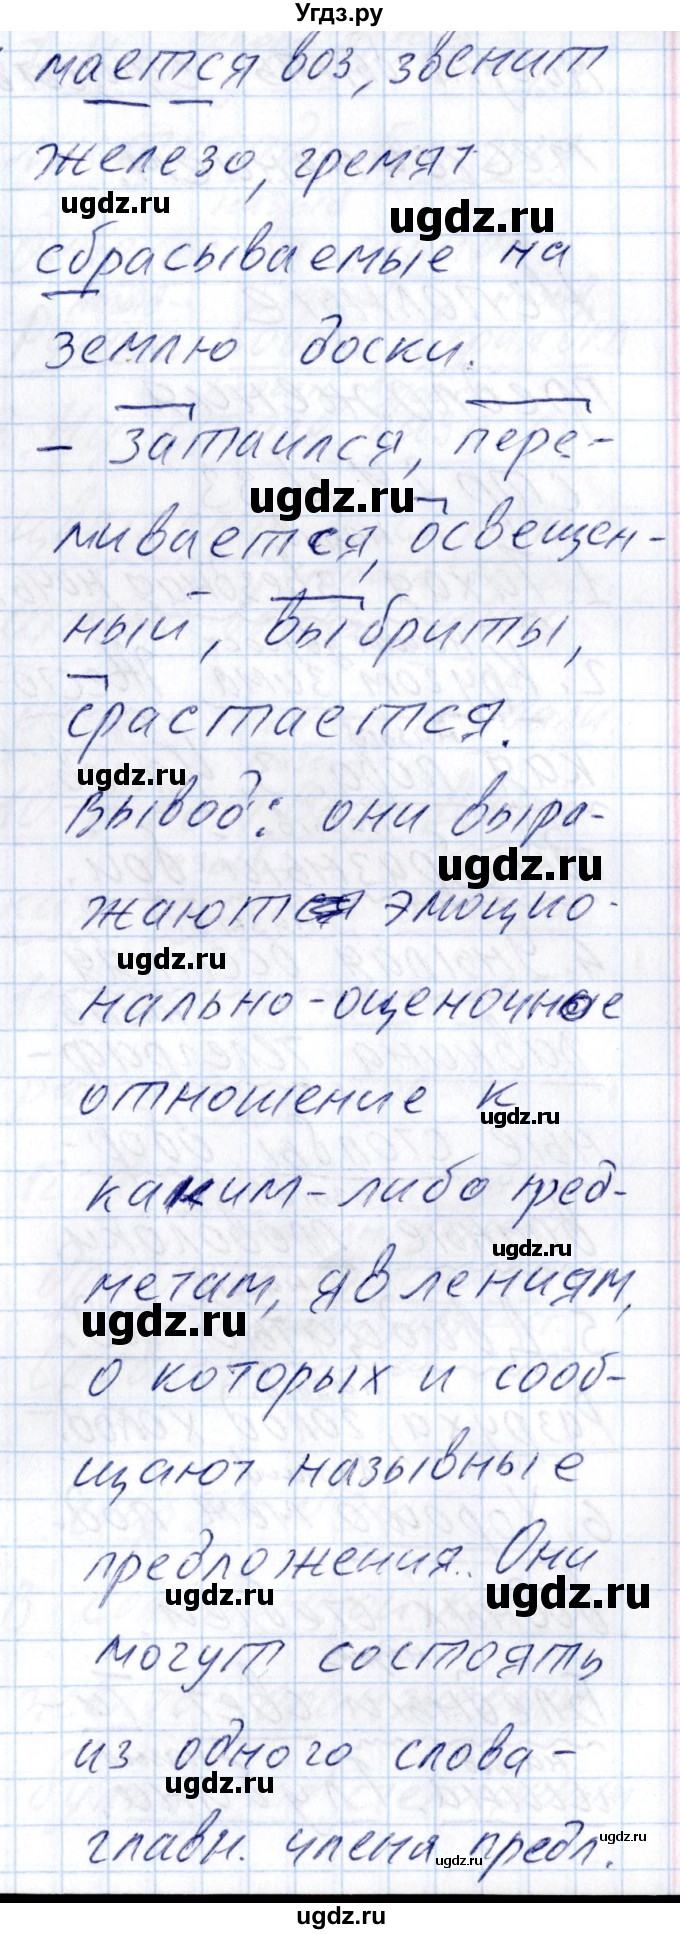 Угдз.ру
мается воз, звенит
железо, гремят
ugdz.ru
ugdz.ru
сбрасываемые на
землю доски.
- затаился, пере-
ugdz.ru
ливается, освещен-
ный, выбриты,
срастается.
ugdz.ru
Вывод: они выра-
ugdz.ru
жаются эмоцио-
ugdz.ru
нально-оценочное
отношение к
ugdz.ru
каким-либо пред-
ugdz.ru
метам, явлениям,
ugdz.ru
о которых и сооб-
щают назывные
предложения. Они
ugdz.ru
ugdz.ru
могут состоять
из одного слова-
ugdz.ru
главн. члена предл.
ugdz.ru
ugdz.ru
ugdz.ru